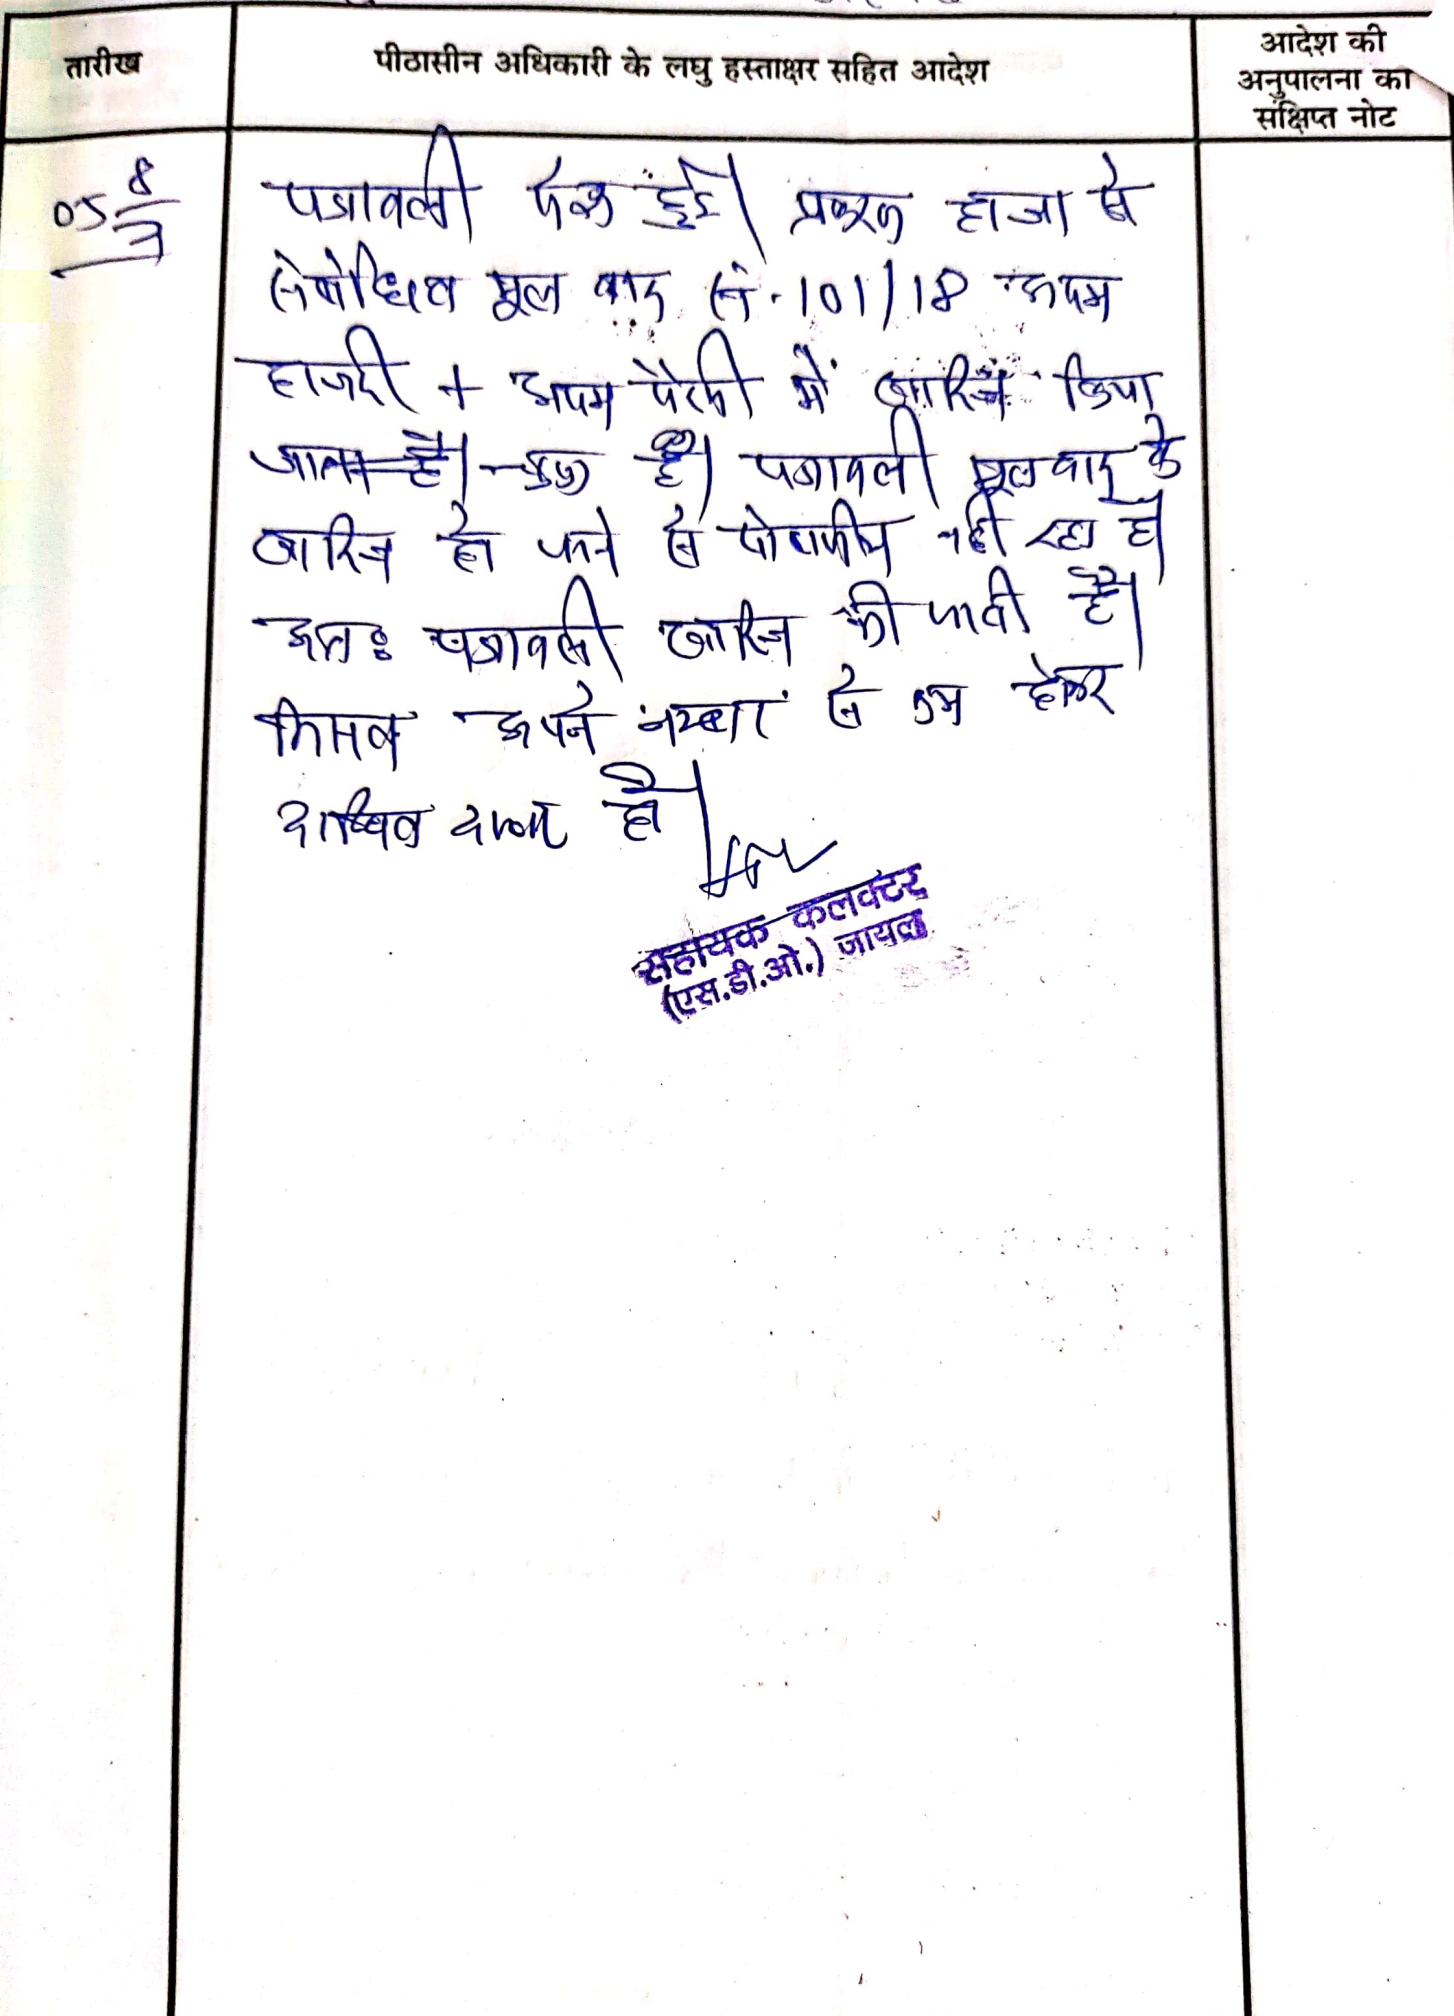 तारीख
पीठासीन अधिकारी के लघु हस्ताक्षर सहित आदेश
आदेश की
अनुपालना का
संक्षिप्त नोट
05 8/7
पत्रावली पेश हुई। प्रकरण हाजा से
संबंधित मूल वाद सं. 101/18 अदम
हाजरी + अदम पैरवी में खारिज किया
जाता है। चुका है। पत्रावली मूल वाद के
खारिज हो जाने से पोषणीय नहीं रहा है
अतः पत्रावली खारिज की जाती है।
मिसल अपने नम्बर से कम होकर
दाखिल दफ्तर हो।
सहायक कलक्टर
(एस.डी.ओ.) जायल